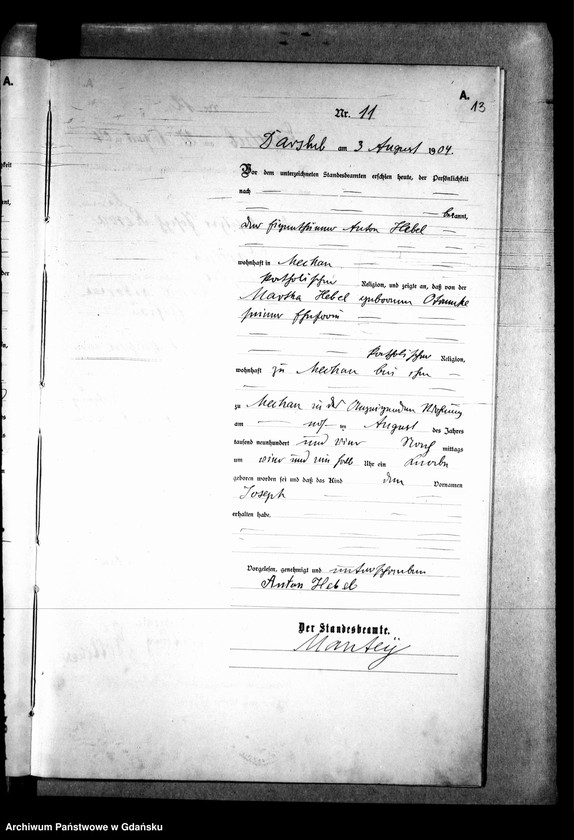 A.
A.
13
Nr. 11
Darslub am 3 August 1904.
Vor dem unterzeichneten Standesbeamten erschien heute, der Persönlichkeit
nach
bekannt,
der Eigenthümer Anton Hebel
wohnhaft in Mechau
katholischer Religion, und zeigte an, daß von der
Martha Hebel geborenen
seiner Ehefrau
katholischer Religion,
wohnhaft zu Mechau bei ihm
zu Mechau in der Wohnung
am im August des Jahres
tausend neunhundert und vier Nach mittags
um vier und ein halb Uhr ein Knabe
geboren worden sei und daß das Kind den Vornamen
Joseph
erhalten habe.
Vorgelesen, genehmigt und unterschrieben
Anton Hebel
Der Standesbeamte.
Manteÿ
Archiwum Państwowe w Gdańsku